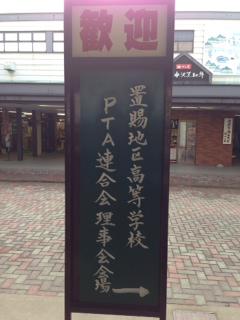 歓迎
置賜地区高等学校
PTA連合会理事会会場
→